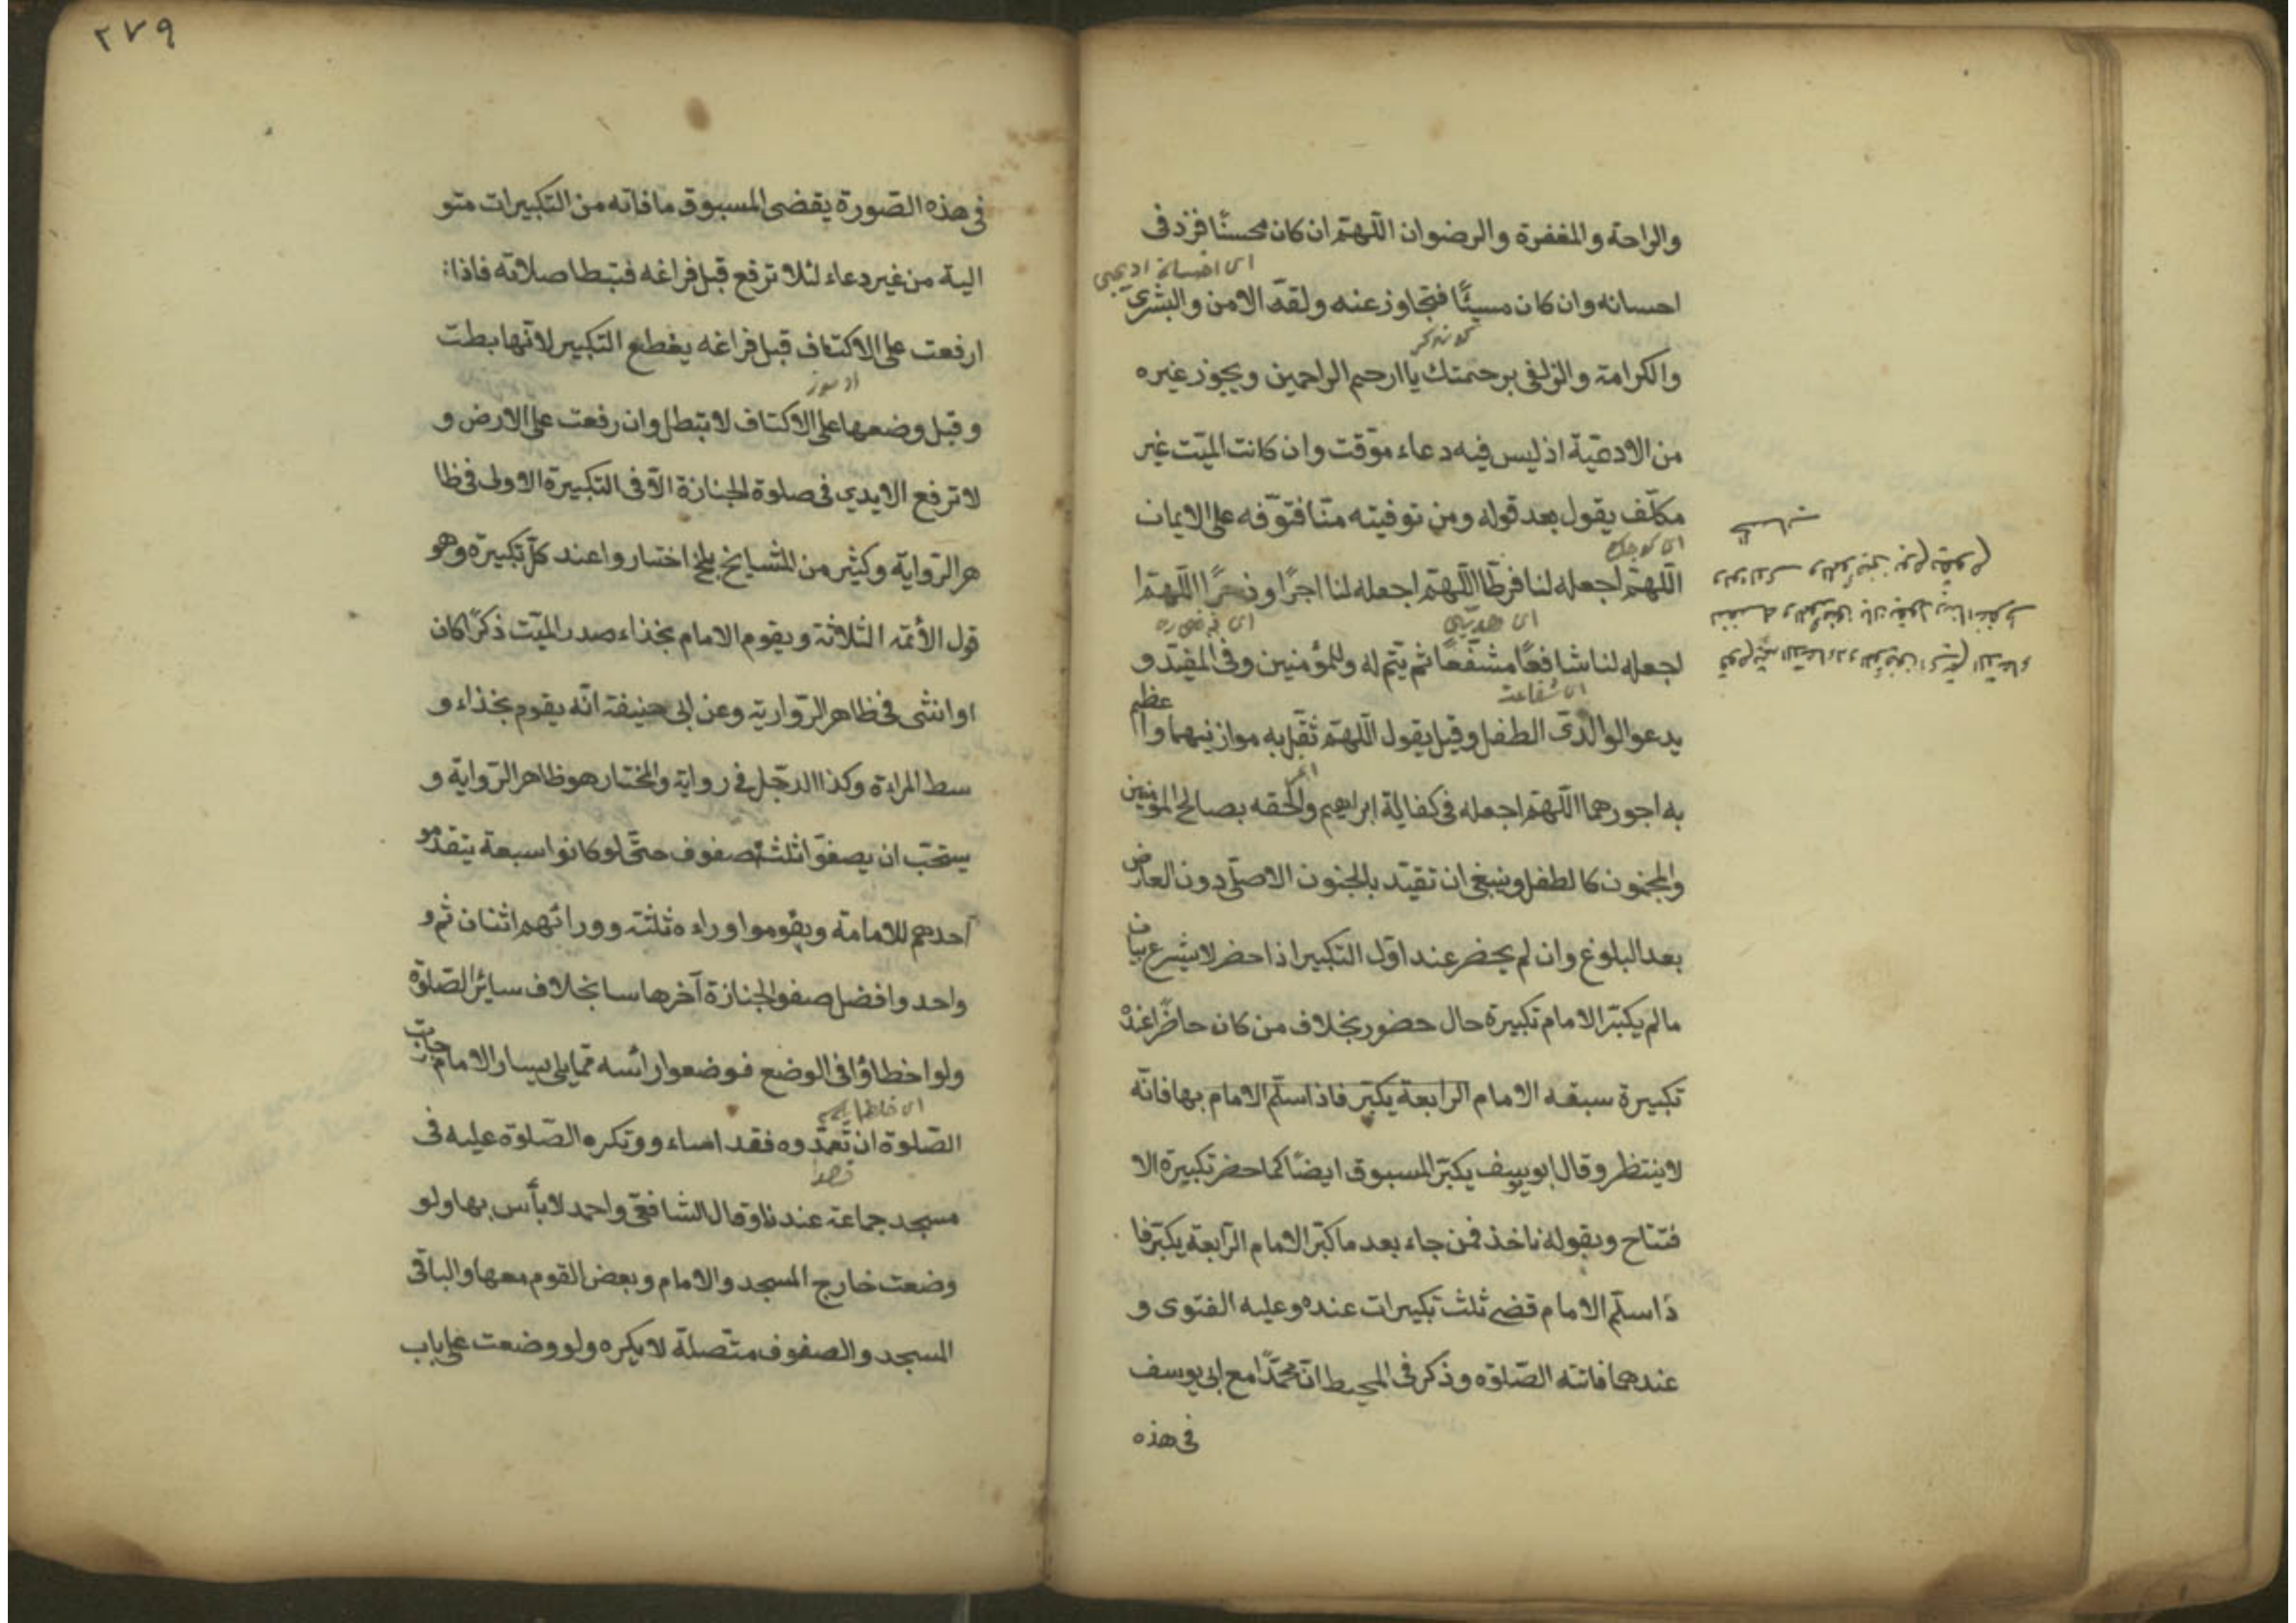 والراحة والمغفرة والرضوان اللهم ان كان محسنًا فزد فى
احسانه وان كان مسيئًا فتجاوز عنه ولقه الامن والبشرى
والكرامة والزلفى برحمتك يا ارحم الراحمين ويجوز غيره
من الادعية اذ ليس فيه دعاء موقت وان كانت الميت غير
مكلف يقول بعد قوله ومن توفيته منا فتوفه على الايمان
اللهم اجعله لنا فرطا اللهم اجعله لنا اجرًا وذخرًا اللهم ا
لجعله لنا شافعًا مشفعًا ثم يتم له وللمؤمنين وفى المفيد و
يدعو الوالدى الطفل وقيل يقول اللهم ثقل به موازينهما وا
عظم
به اجورهما اللهم اجعله فى كفالة ابراهيم والحقه بصالح المؤمنين
والمجنون كالطفل وينبغى ان تقيد بالجنون الاصلى دون العارض
بعد البلوغ وان لم يحضر عند اول التكبير اذا حضر لا يشرع
مالم يكبر الامام تكبيرة حال حضور بخلاف من كان حاضرًا عنده
تكبيرة سبقه الامام الرابعة يكبر فاذا سلم الامام بها فانه
لا ينتظر وقال ابو يوسف يكبر المسبوق ايضًا كما حضر تكبيرة الا
فتتاح وبقوله ناخذ فمن جاء بعد ما كبر الامام الرابعة يكبر فا
ذا سلم الامام قضى ثلث تكبيرات عنده وعليه الفتوى و
عندهما فاتته الصلوة وذكر فى المحيط ان محمدًا مع ابى يوسف
فى هذه
٢٧٩
فى هذه الصورة يقضى المسبوق ما فاته من التكبيرات متو
الية من غير دعاء لئلا ترفع قبل فراغه فتبطا صلاته فاذا
ارفعت على الاكتاف قبل فراغه يقطع التكبير لانها بطت
وقبل وضعها على الاكتاف لا تبطل وان رفعت على الارض و
لا ترفع الايدي فى صلوة الجنازة الا فى التكبيرة الاولى فى ظا
هر الرواية وكثير من المشايخ بلخ اختاروا عند كل تكبيرة وهو
قول الأئمة الثلاثة ويقوم الامام بحذاء صدر الميت ذكرًا كان
او انثى فى ظاهر الرواية وعن ابى حنيفة انه يقوم بحذاء و
سط المراءة وكذا الرجل فى رواية والمختار هو ظاهر الرواية و
يستحب ان يصفوا ثلثة صفوف حتى لو كانوا سبعة يتقدمو
احدهم للامامة ويقوموا وراءه ثلثة وورائهم اثنان ثم و
واحد وافضل صفو الجنازة آخرها سا بخلاف سائر الصلوة
ولو اخطاؤا فى الوضع فوضعوا رائسه مما يلى يسار الامام جازت
الصلوة ان تعمدوه فقد اساء و وتكره الصلوة عليه فى
قصدا
مسجد جماعة عندنا وقال الشافعى واحمد لا بأس بها ولو
وضعت خارج المسجد والامام وبعض القوم معها والباقى
المسجد والصفوف متصلة لا يكره ولو وضعت على باب